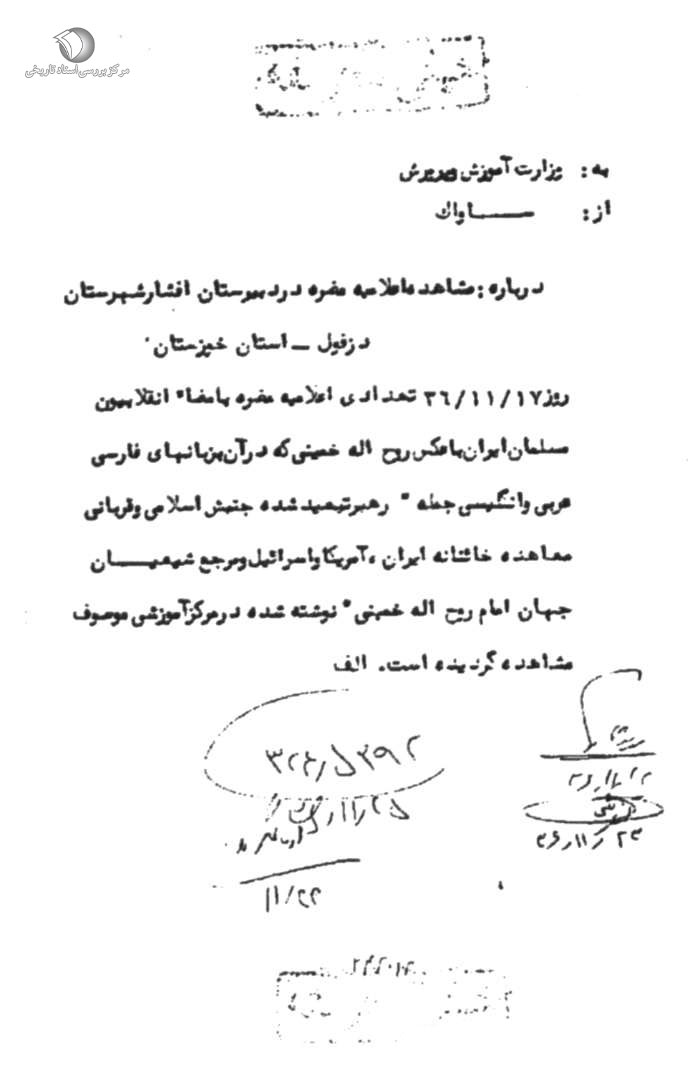 مرکز بررسی اسناد تاریخی
به : وزارت آموزش وپرورش
از : ســـاواك
درباره : مشاهده اعلامیه مضره در دبیرستان افشار شهرستان
دزفول ــ استان خوزستان
روز ٣٦/١١/١٧ تعدادی اعلامیه مضره بامضاء انقلابیون
مسلمان ایران با عکس روح اله خمینی که در آن بزبانهای فارسی
عربی و انگلیسی جمله " رهبر تبعید شده جنبش اسلامی و قربانی
معاهده خائنانه ایران ، آمریکا و اسرائیل و مرجع شیعیـــان
جهان امام روح اله خمینی " نوشته شده در مرکز آموزشی موصوف
مشاهده گردیده است. الف
١١/٢٢
٣٦/١١/٢٣